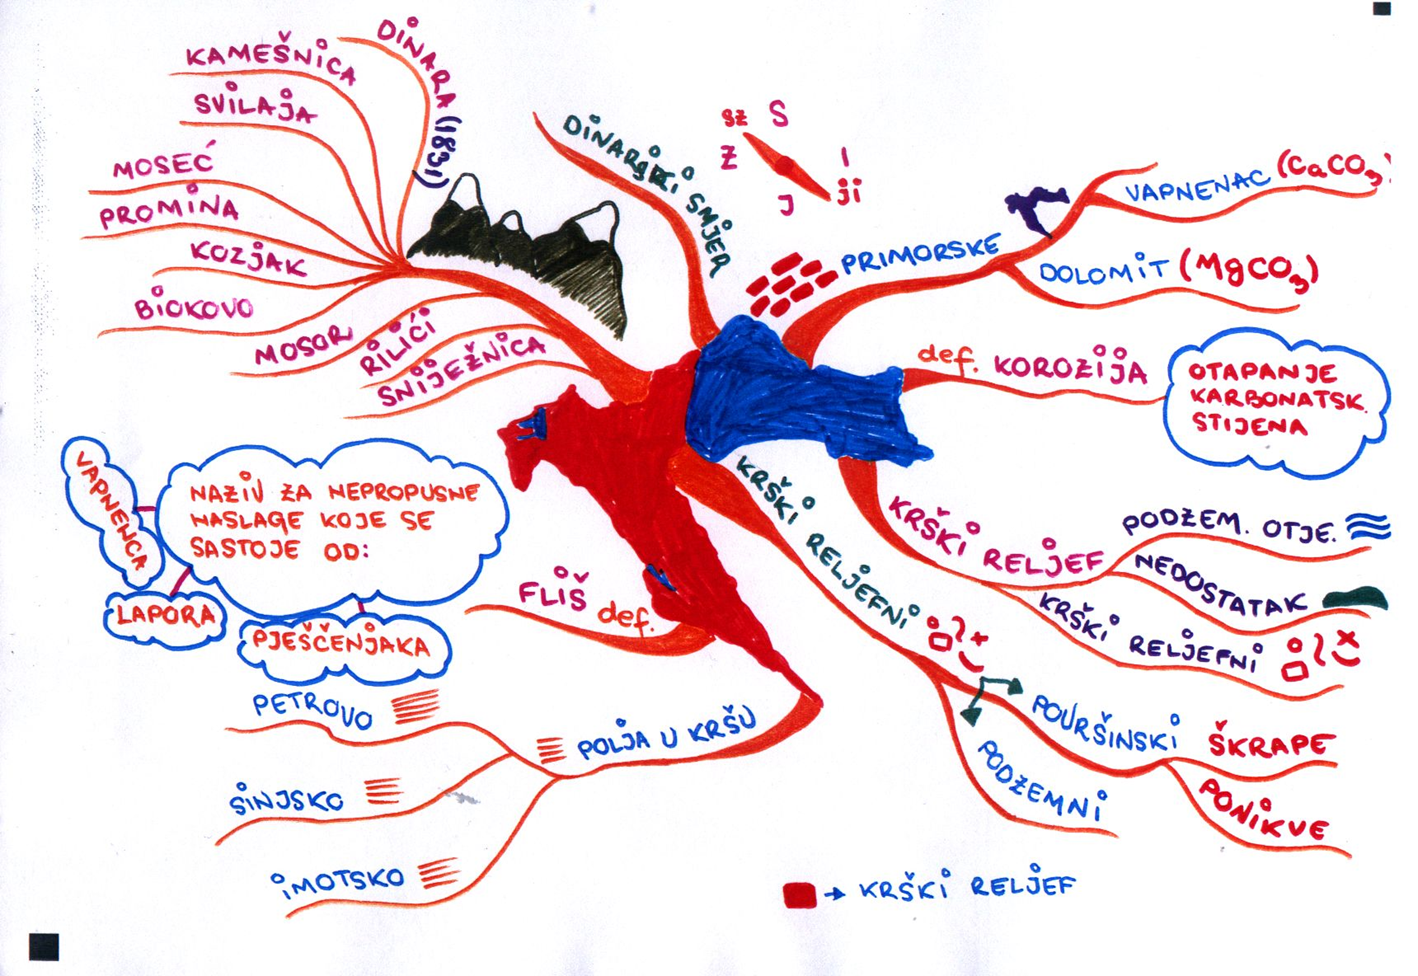 KAMEŠNICA
DINARA (1831)
SVILAJA
MOSEĆ
PROMINA
KOZJAK
BIOKOVO
MOSOR
RILIĆI
SNIJEŽNICA
DINARSKI SMJER
SZ S
Z I
J JI
PRIMORSKE
VAPNENAC (CaCO3)
DOLOMIT (MgCO3)
def. KOROZIJA
OTAPANJE
KARBONATSK.
STIJENA
KRŠKI RELJEF
PODZEM. OTJE.
NEDOSTATAK
KRŠKI RELJEFNI
KRŠKI RELJEFNI
POVRŠINSKI
ŠKRAPE
PONIKVE
PODZEMNI
VAPNENCA
NAZIV ZA NEPROPUSNE
NASLAGE KOJE SE
SASTOJE OD:
LAPORA
PJEŠČENJAKA
FLIŠ def.
PETROVO
POLJA U KRŠU
SINJSKO
IMOTSKO
→ KRŠKI RELJEF